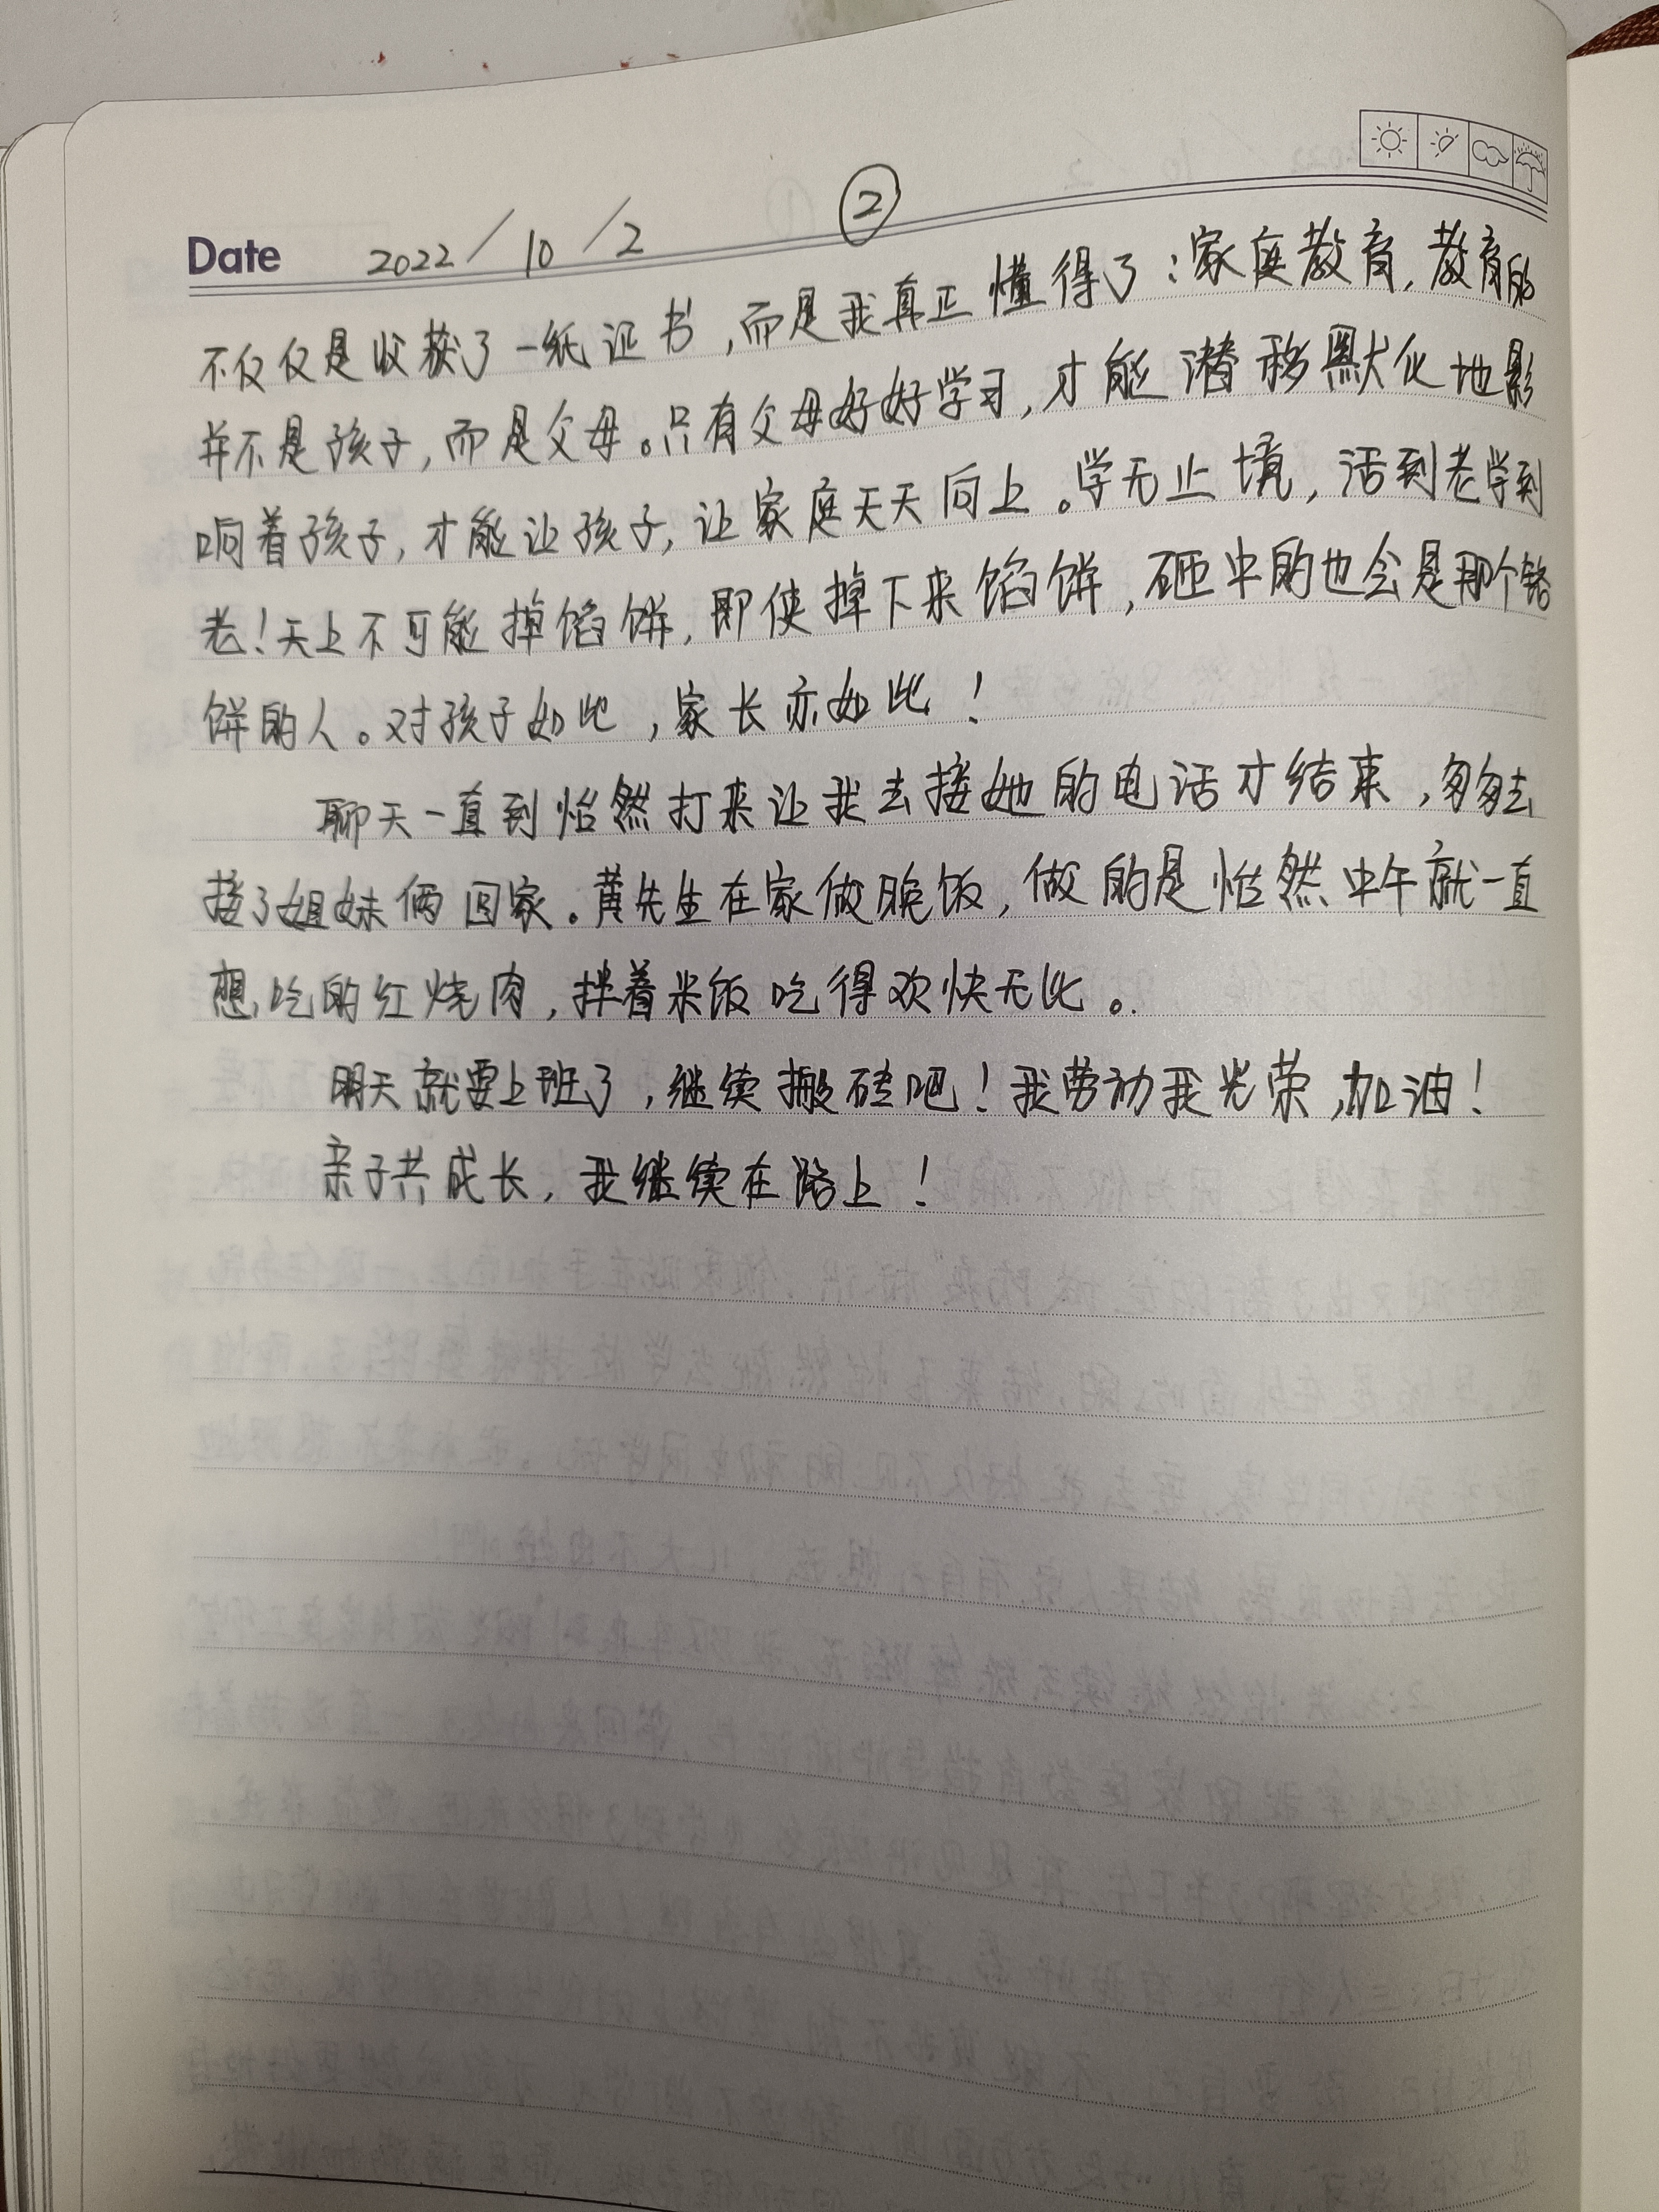 ②
Date 2022/10/2
不仅仅是收获了一纸证书，而是我真正懂得了：家庭教育，教育的
并不是孩子，而是父母。只有父母好好学习，才能潜移默化地影
响着孩子，才能让孩子，让家庭天天向上。学无止境，活到老学到
老！天上不可能掉馅饼，即使掉下来馅饼，砸中的也会是那个烙
饼的人。对孩子如此，家长亦如此！
聊天一直到怡然打来让我去接她的电话才结束，匆匆去
接了姐妹俩回家。黄先生在家做晚饭，做的是怡然中午就一直
想吃的红烧肉，拌着米饭吃得欢快无比。
明天就要上班了，继续搬砖吧！我劳动我光荣，加油！
亲子共成长，我继续在路上！